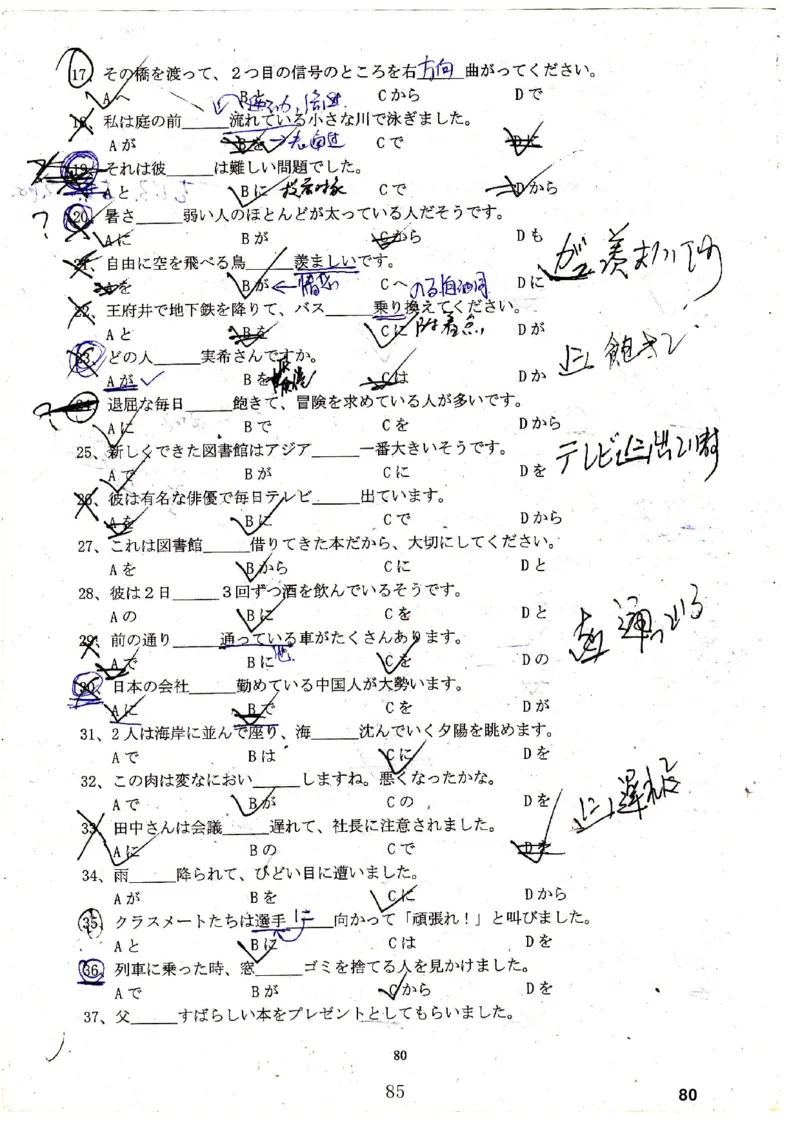 17、その橋を渡って、２つ目の信号のところを右方向____曲がってください。
Aへ Bと Cから Dで
18、私は庭の前____流れている小さな川で泳ぎました。
Aが Bを Cで Dに
19、それは彼____は難しい問題でした。
Aと Bに Cで Dから
? 20、暑さ____弱い人のほとんどが太っている人だそうです。
Aに Bが Cから Dも
21、自由に空を飛べる鳥____羨ましいです。 が羨ましいです
Aを Bが ←情感 Cへ Dに
22、王府井で地下鉄を降りて、バス____乗り換えてください。
Aと Bを Cに 附着点 Dが
23、どの人____実希さんですか。 に飽きて
Aが Bを Cは Dか
? 24、退屈な毎日____飽きて、冒険を求めている人が多いです。
Aに Bで Cを Dから
25、新しくできた図書館はアジア____一番大きいそうです。
Aで Bが Cに Dを
テレビに出ています
26、彼は有名な俳優で毎日テレビ____出ています。
Aを Bに Cで Dから
27、これは図書館____借りてきた本だから、大切にしてください。
Aを Bから Cに Dと
28、彼は２日____３回ずつ酒を飲んでいるそうです。
Aの Bに Cを Dと
を通っている
29、前の通り____通っている車がたくさんあります。
Aで Bに Cを Dの
30、日本の会社____勤めている中国人が大勢います。
Aに Bで Cを Dが
31、２人は海岸に並んで座り、海____沈んでいく夕陽を眺めます。
Aで Bは Cに Dを
32、この肉は変なにおい____しますね。悪くなったかな。
Aで Bが Cの Dを
に遅れて
33、田中さんは会議____遅れて、社長に注意されました。
Aに Bの Cで Dを
34、雨____降られて、ひどい目に遭いました。
Aが Bを Cに Dから
35、クラスメートたちは選手に____向かって「頑張れ！」と叫びました。
Aと Bに Cは Dを
36、列車に乗った時、窓____ゴミを捨てる人を見かけました。
Aで Bが Cから Dを
37、父____すばらしい本をプレゼントとしてもらいました。
80
85
80